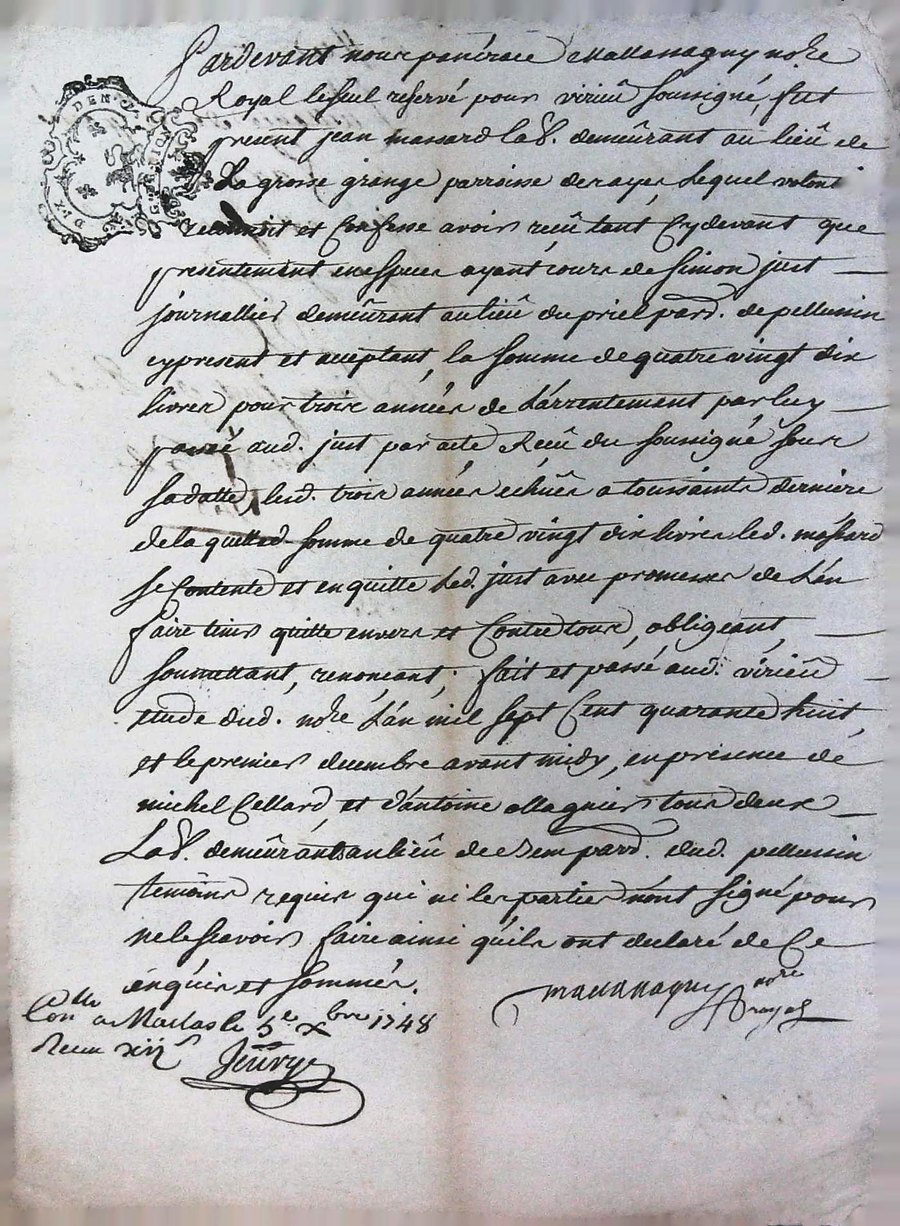 Pardevant nous pancrace Mallassagny no.re
Royal le seul reservé pour virieû soussigné, fut
present jean massard lab.r demeûrant au lieû de
La grosse grange parroisse de rayes Lequel volont
reconnoit et Confesse avoir reçû tant Cydevant que
presentement en espèces ayant cours de Simon just
journallier demeûrant au lieû du priel parr.se de pellussin
cy present et acceptant, la somme de quatre vingt dix
livres pour trois années de L'arrentement par luy
passé aud. just par acte Reçû du soussigné sous
sa datte, lesd. trois années echües a toussaints derniere
de laquelle d. somme de quatre vingt dix livres led. massard
se Contente et en quitte Led. just avec promesses de L'en
faire tenir quitte envers et Contre tous, obligeant,
soumettant, renoncant; fait et passé aud. virieû
etude dud. no.re L'an mil sept Cent quarante huit,
et le premier decembre avant midy, en presence de
michel Cellard, et d'antoine Magnier tous deux
Lab.rs demeûrants au lieû de parr.se dud. pellussin
temoins requis qui ni les parties n'ont signé pour
ne le sçavoir faire ainsi qu'ils ont declaré de Ce
enquis et sommés.
no.re
royal
Con.lle a Maclas le 5e Xbre 1748
Receu xii s